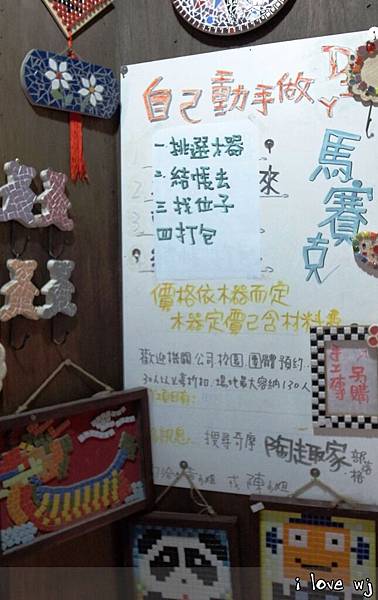 自己動手做 DIY
馬賽克
一挑選木器
二.結帳去
三找位子
四打包
來
價格依木器而定
木器定價已含材料費
手工磚
另購
歡迎機關.公司.校園.團體預約..
30人以上享折扣.場地最大容納130人
項目有:
訊息:搜尋奇摩 陶趣家 部落格
或 陳小姐
i love wj